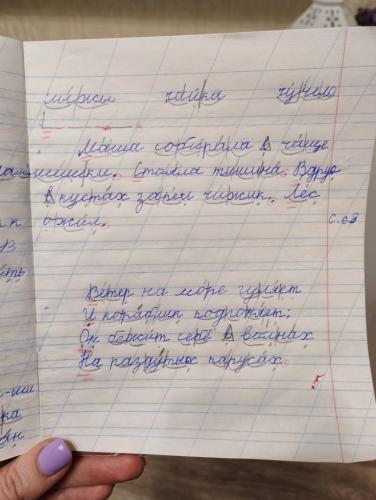 моржи чайка чучело
Маша собирала в чаще
шишки. Стояла тишина. Вдруг
в кустах запел чижик. Лес
ожил.
с. 63
Ветер на море гуляет
И кораблик подгоняет;
Он бежит себе в волнах
На раздутых парусах.
5